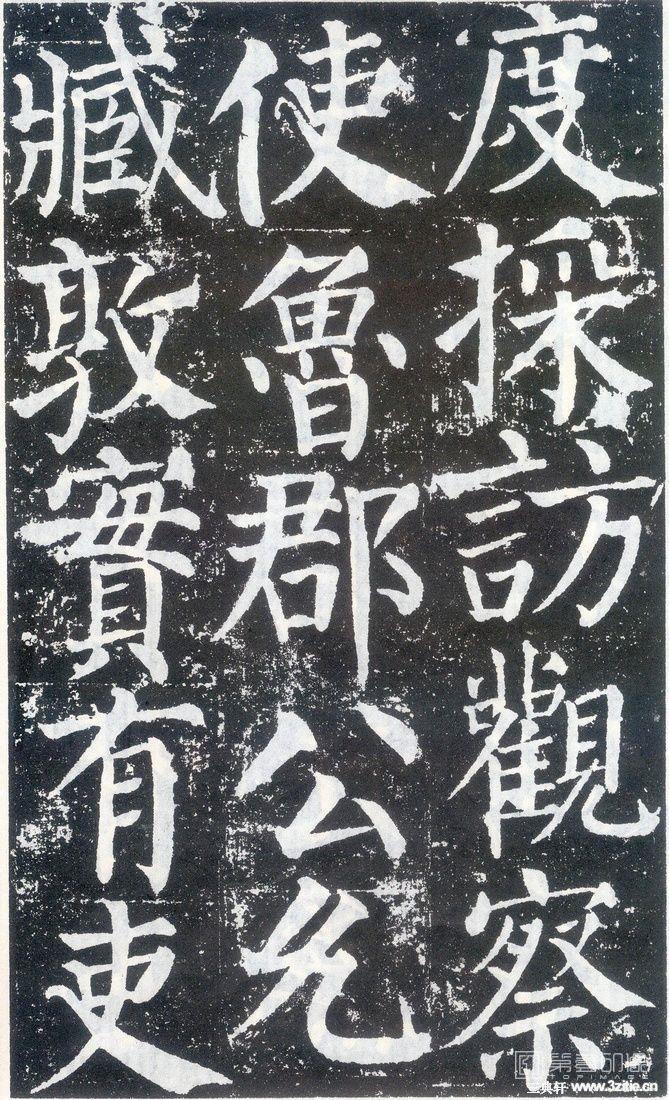 度採訪觀察
使魯郡公允
臧敦實有吏
www.3zitie.cn